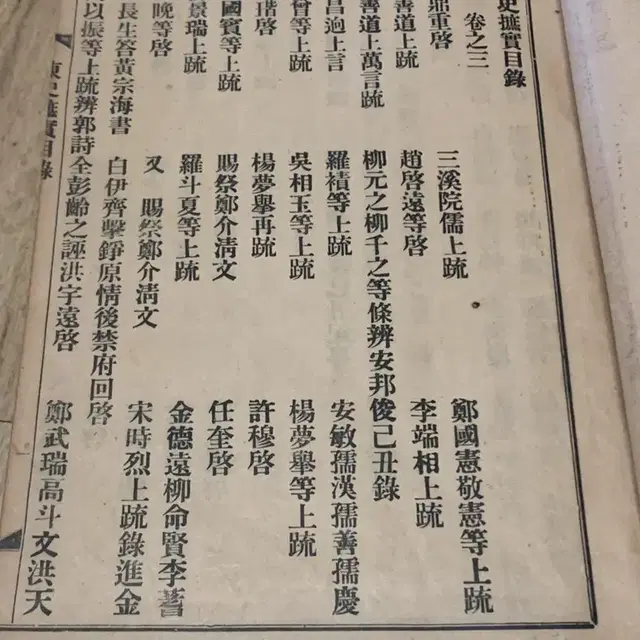 史摭實目錄
卷之三
重啓 三溪院儒上疏 鄭國憲敬憲等上疏
善道上疏 趙啓遠等啓 李端相上疏
善道上萬言疏 柳元之柳千之等條辨安邦俊己丑錄
上言 羅襀等上疏 安敏孺漢孺善孺慶
曾等上疏 吳相玉等上疏 楊夢擧等上疏
啓 楊夢擧再疏 許穆啓
國賓等上疏 賜祭鄭介淸文 任奎啓
景瑞上疏 羅斗夏等上疏 金德遠柳命賢李蓍
晩等啓 又 賜祭鄭介淸文 宋時烈上疏錄進金
長生答黃宗海書 白伊齊擊錚原情後禁府回啓
以振等上疏辨郭詩全彭齡之誣洪宇遠啓 鄭武瑞高斗文洪天
東史摭實目錄